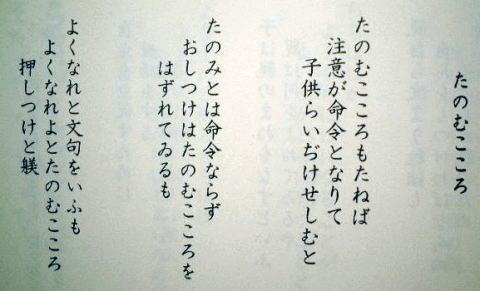 たのむこころ
たのむこころもたねば
注意が命令となりて
子供らいぢけせしむと
たのみとは命令ならず
おしつけはたのむこころを
はずれてゐるも
よくなれと文句をいふも
よくなれよとたのむこころ
押しつけと躾